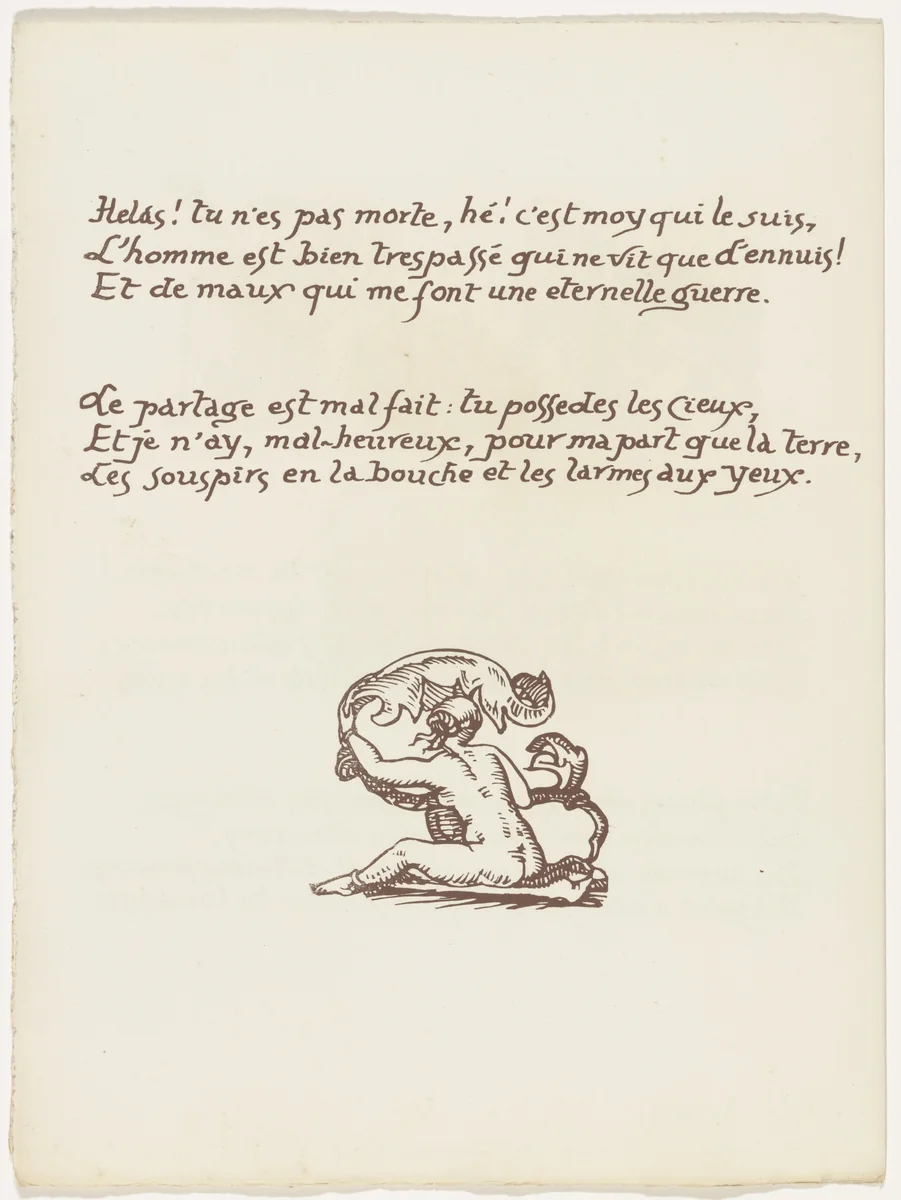 Helás! tu n'es pas morte, hé! c'est moy qui le suis,
L'homme est bien trespassé qui ne vit que d'ennuis!
Et de maux qui me font une eternelle guerre.
Le partage est mal fait: tu possedes les Cieux,
Et je n'ay, mal-heureux, pour ma part que la terre,
Les souspirs en la bouche et les larmes aux yeux.